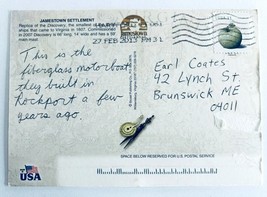 JAMESTOWN SETTLEMENT
Replica of the Discovery, the smallest of
ships that came to Virginia in 1607. Commissioned
in 2007 Discovery is 66' long, 14' wide and has a 55'
main mast.
27 FEB 2013 PM 3 L
This is the
fiberglass motorboat
they built in
Rockport a few
years ago.
Earl Coates
42 Lynch St.
Brunswick ME
04011
USA
SPACE BELOW RESERVED FOR U.S. POSTAL SERVICE